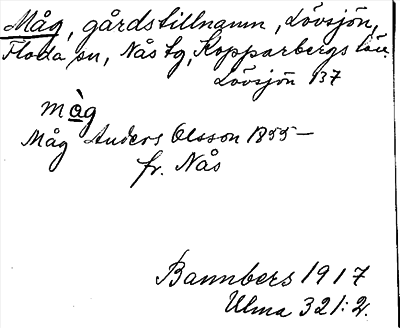 Måg, gårdstillnamn, Lövsjön,
Floda sn, Nås tg, Kopparbergs län.
Lövsjön 137
màg
Måg Anders Olsson 1855–
fr. Nås
Bannbers 1917
Ulma 321:2.